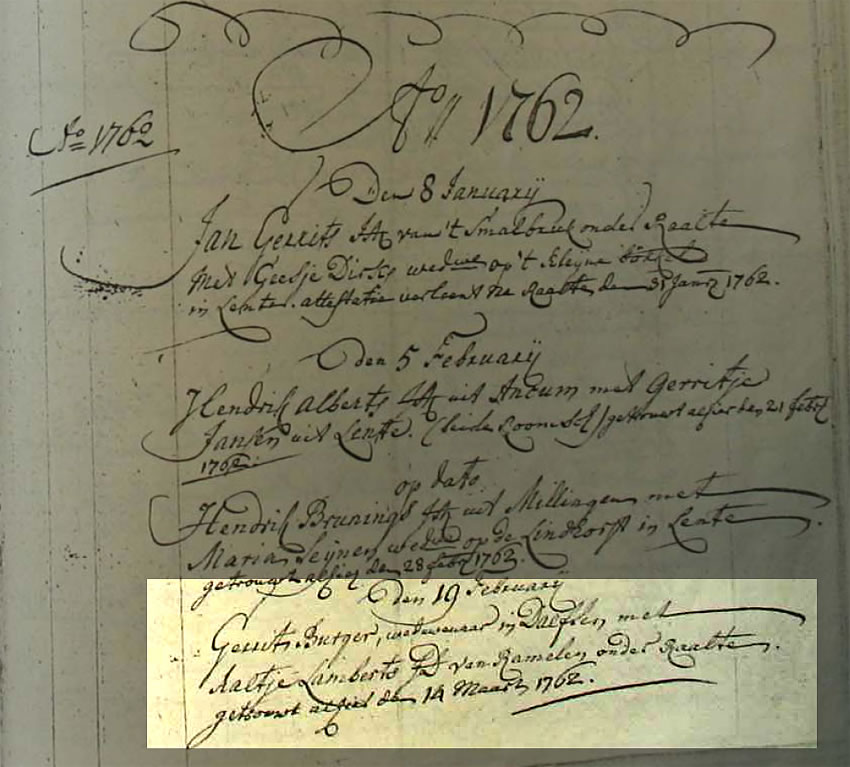 Ao 1762.
Ao 1762
Den 8 January
Jan Gerrits JM van 't Smalbroek onder Raalte
Met Geesje Dirks wedwe op 't Kleyne
in Lente. attestatie verleent na Raalte den 31 Janrij 1762.
Den 5 February
Hendrik Alberts JM uit Ancum met Gerritje
Jansen uit Lente. (beide Rooms) getrouwt alhier den 21 febr
1762.
op dato
Hendrik Brunings JM uit Millingen met
Maria Seynen wedwe op de Lindhorst in Lente
getrouwt alhier den 28 febr 1762.
den 19 February
Gerrit Burger, wedwenaar in Dalfsen met
Aaltje Lamberts JD van Ramelen onder Raalte.
getrouwt alhier den 14 Maart 1762.